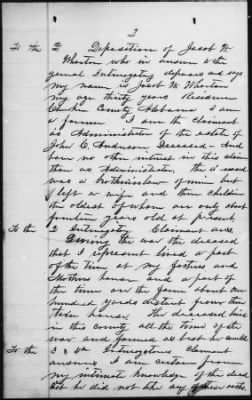 2
To the Deposition of Jacob W
Wharton who in answer to the
general Interrogatory deposes and says
my name is Jacob W Wharton
my age thirty years Residence
County Alabama I am
a farmer I am the claimant
as Administrator of the estate of
John C. Anderson Deceased and
have no other interest in this claim
than as Administrator. The deceased
was a brotherinlaw of mine but
left a wife and three children
the oldest of whom are only about
fourteen years old at present
To the 2 Interrogatory Claimant ans.
During the war the deceased
that I represent lived a part
of the time at my Fathers and
Mothers house and a part of
the time on the farm about one
hundred yards distant from the
house. The deceased lived
in this county all the time of the
war and farmed as best he could
To the 3 & 4th Interrogatory Claimant
answers I am certain from
my intimate knowledge of the dead
that he did not take any of these oaths